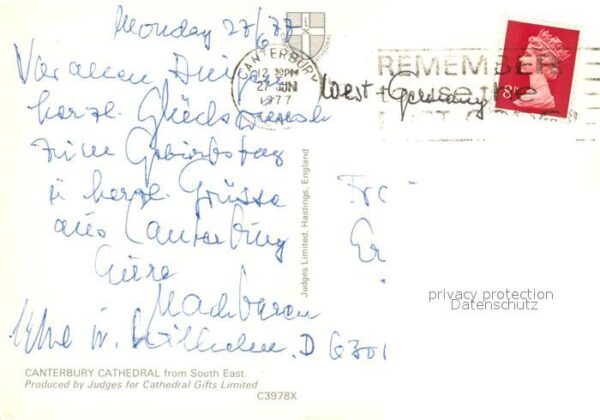 Monday 27/6 77
Vor allen Dingen
herzl. Glückwunsch
zum Geburtstag
u herzl. Grüsse
aus Canterbury
Eure
Nachbarn
u. Wilhelm.
CANTERBURY
12 30PM
27 JUN
1977
REMEMBER
use the
West Germany
8P
Judges Limited, Hastings, England
Fr
D 6301
privacy protection
Datenschutz
CANTERBURY CATHEDRAL from South East.
Produced by Judges for Cathedral Gifts Limited
C3978X